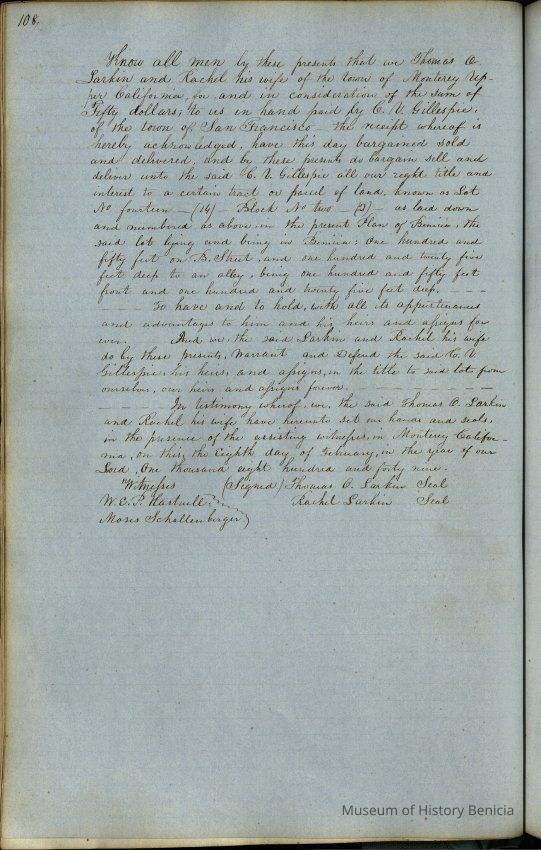 108.
Know all men by these presents that we Thomas O.
Larkin and Rachel his wife of the town of Monterey Up-
per California, for and in consideration of the sum of
Fifty dollars, to us in hand paid by C. V. Gillespie,
of the town of San Francisco – the receipt whereof is
hereby acknowledged, have this day bargained sold
and delivered, and by these presents do bargain sell and
deliver unto the said C. V. Gillespie all our right title and
interest to a certain tract or parcel of land, known as Lot
No fourteen – (14) – Block No two – (2) – as laid down
and numbered as above, on the present Plan of Benicia, the
said lot lying and being in Benicia: One hundred and
fifty feet on B. Street, and one hundred and twenty five
feet deep to an alley, being one hundred and fifty feet
front and one hundred and twenty five feet deep. – – –
– – – To have and to hold, with all its appurtenances
and advantages to him and his heirs and assigns for
ever. And we, the said Larkin and Rachel his wife
do by these presents, Warrant and Defend the said C. V.
Gillespie, his heirs, and assigns, in the title to said lot, from
ourselves, our heirs and assigns forever. – – – – – –
– – – In testimony whereof, we, the said Thomas O. Larkin
and Rachel his wife have hereunto set our hands and seals,
in the presence of the assisting witnesses, in Monterey Califor-
nia, on this the Eighth day of February, in the year of our
Lord, One thousand eight hundred and forty nine.
Witnesses (Signed) Thomas O. Larkin Seal
W. E. P. Hartnell Rachel Larkin Seal
Moses Schallenberger
Museum of History Benicia